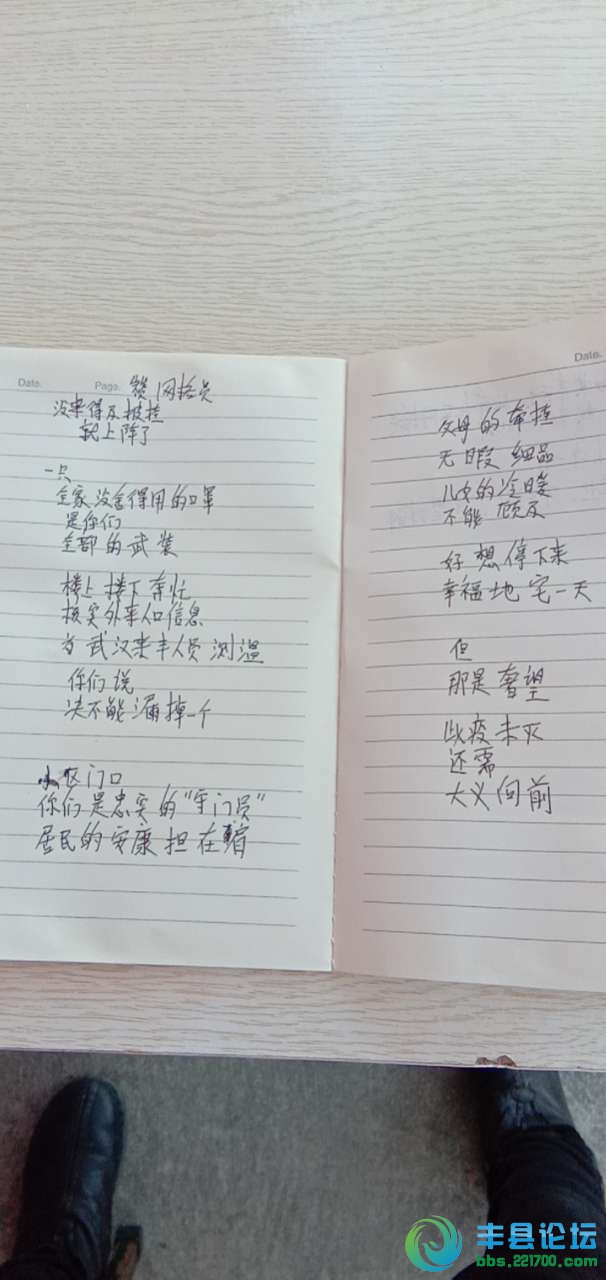 Date.
Page.
赞网格员
没来得及披挂
就上阵了
一只
全家没舍得用的口罩
是你们
全部的武装
楼上楼下奔忙
核实外来人口信息
为武汉来丰人员测温
你们说
决不能漏掉一个
小区门口
你们是忠实的“守门员”
居民的安康担在肩
Date.
父母的牵挂
无暇细品
儿女的冷暖
不能顾及
好想停下来
幸福地宅一天
但
那是奢望
此疫未灭
还需
大义向前
丰县论坛
bbs.221700.com